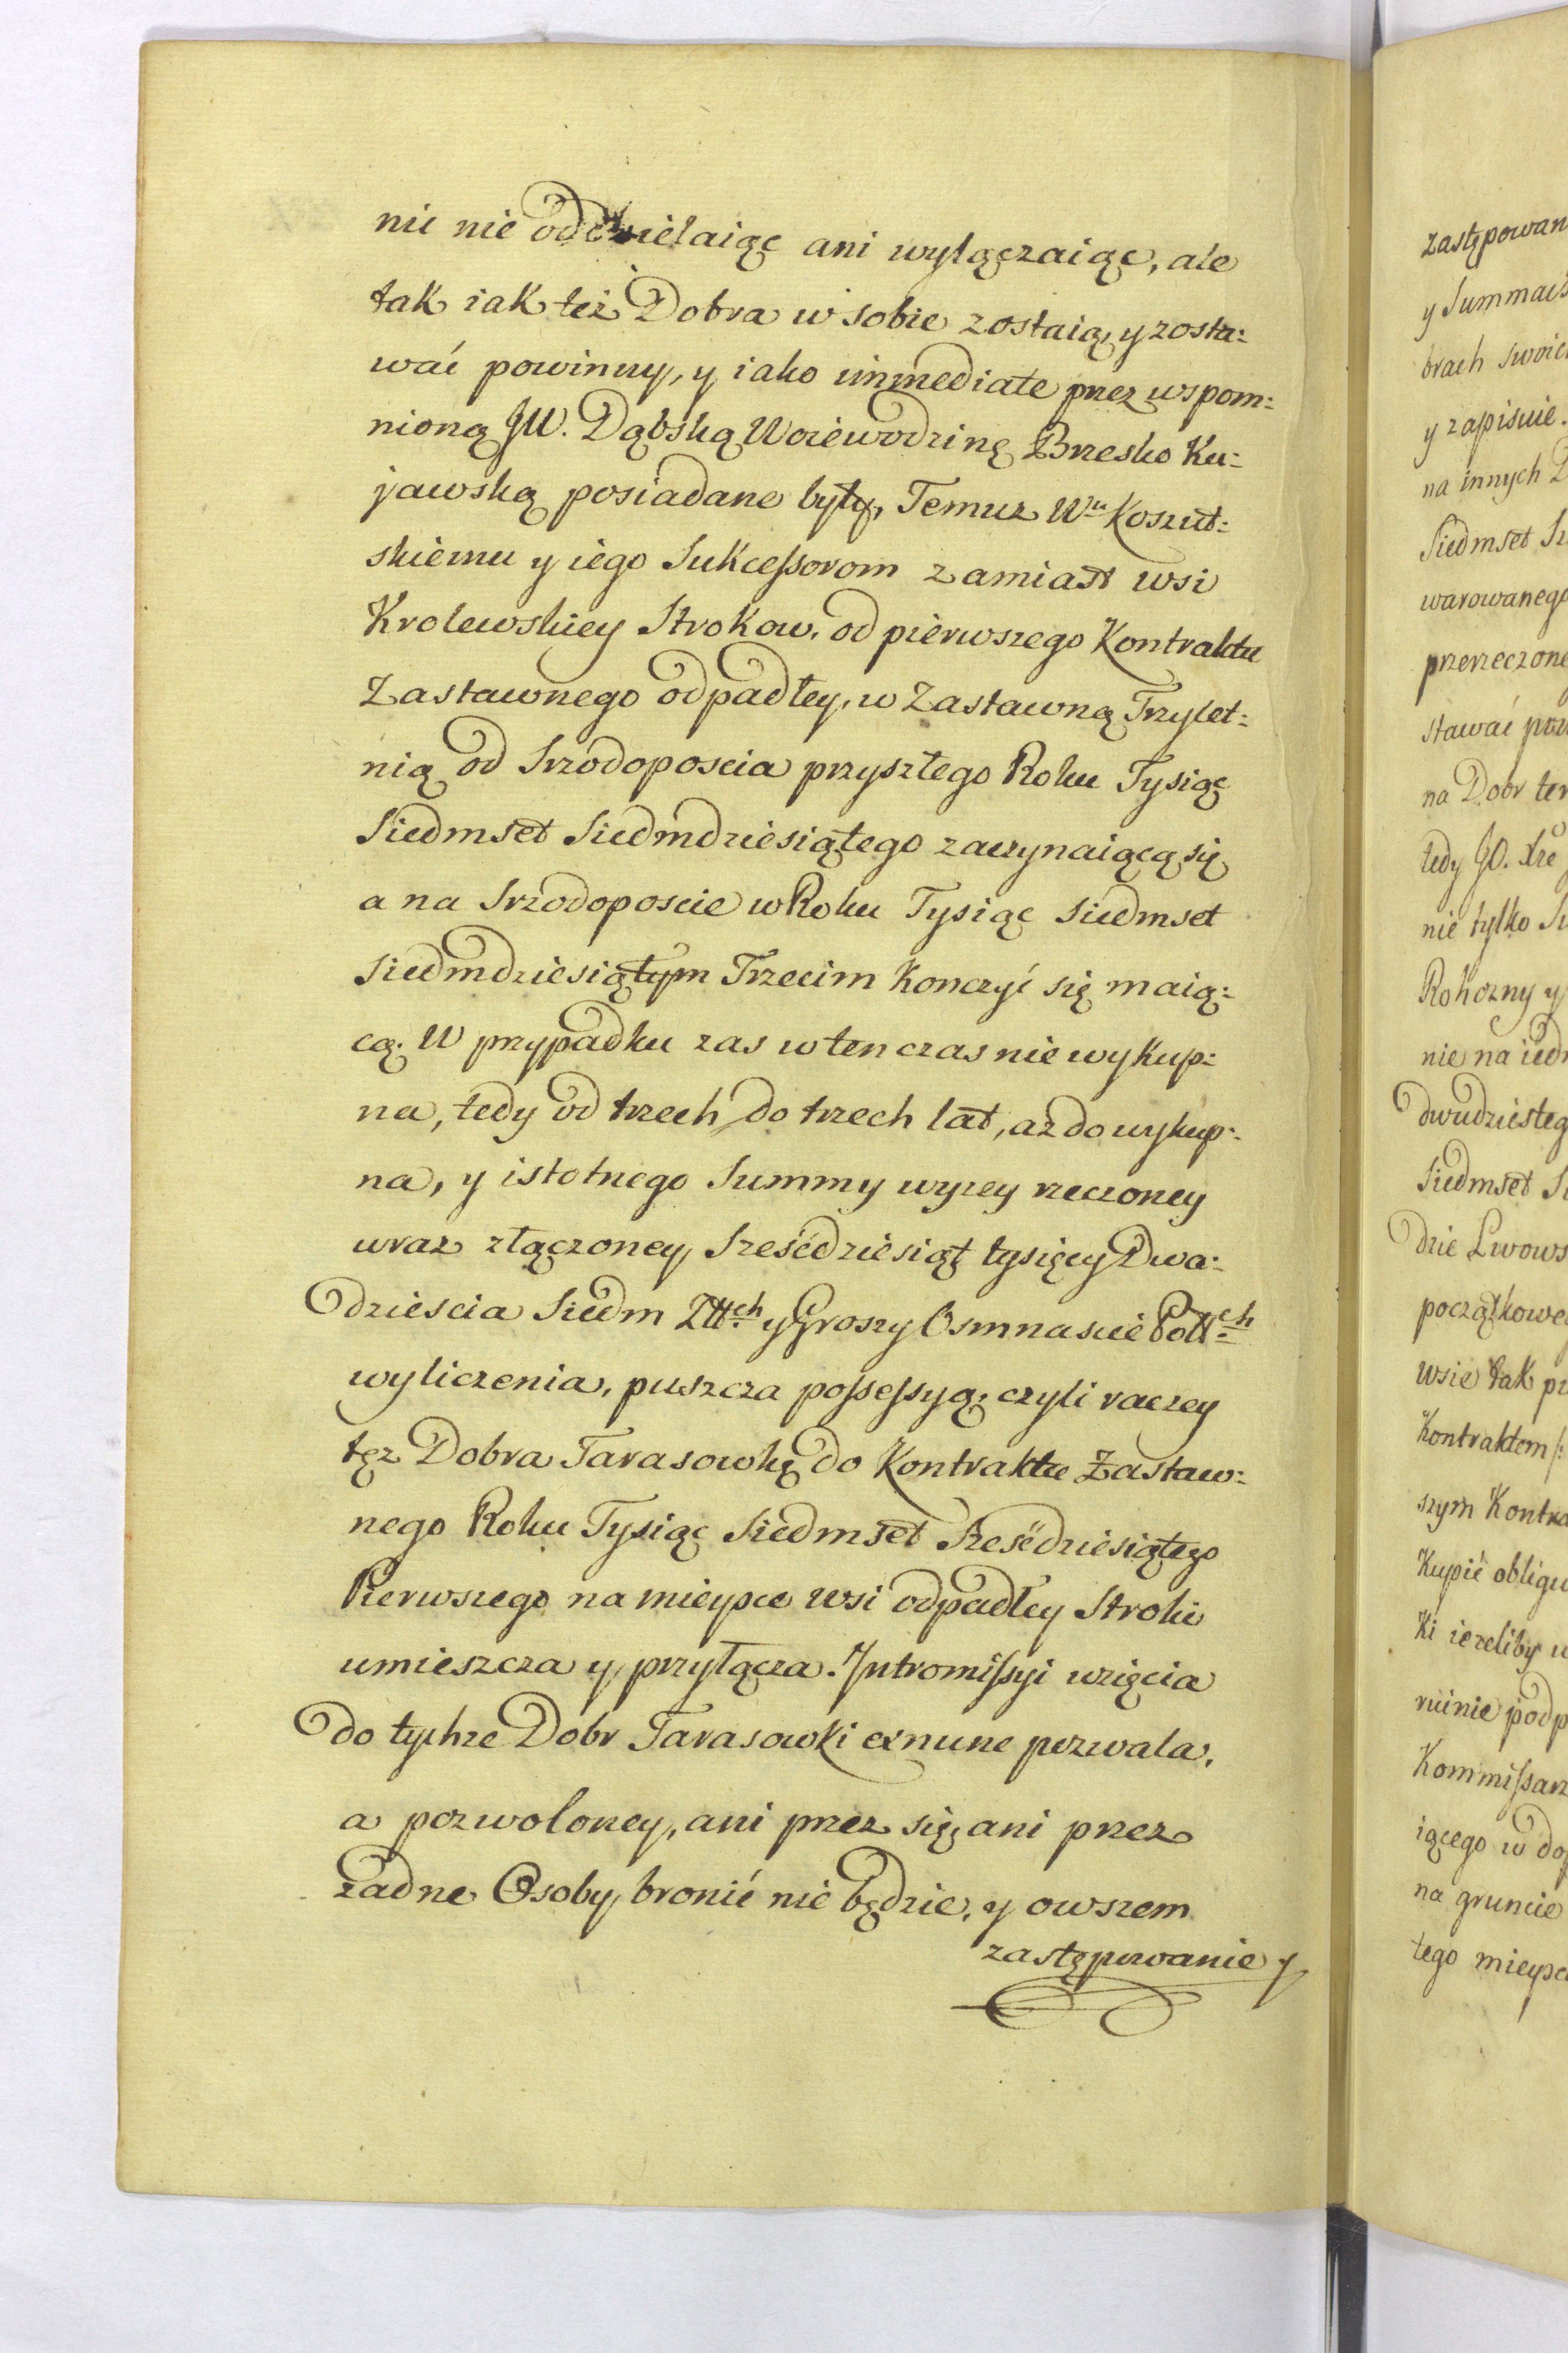 nic nie oddzielaiąc ani wyłączaiąc, ale
tak iak też Dobra w sobie zostaią, y zosta:
wać powinny, y iako immediate przez wspom:
nioną JW. Dąbską Woiewodzinę Brzesko Ku:
jawską posiadane były, Temuz Wu Koszut:
skiemu y iego Sukcessorom zamiast wsi
Krolewskiey Strokow, od pierwszego Kontraktu
Zastawnego odpadłey, w Zastawną Trzylet:
nią od Srzodoposcia przyszłego Roku Tysiąc
Siedmset Siedmdziesiątego zaczynaiącą się
a na Srzodoposcie w Roku Tysiąc Siedmset
Siedmdziesiątym Trzecim konczyć się maią:
cą. W przypadku zas w ten czas nie wykup:
na, tedy od trzech do trzech lat, az do wykup:
na, y istotnego Summy wyzey rzeczoney
wraz złączoney Sześćdziesiąt tysięcy Dwa:
dziescia Siedm Złłch y Groszy Osmnascie Pollch
wyliczenia, puszcza possessyą; czyli raczey
tęz Dobra Tarasowkę do Kontraktu Zastaw:
nego Roku Tysiąc Siedmset Sześćdziesiątego
Pierwszego na mieysce wsi odpadłey Stroki
umieszcza y przyłącza. Intromissyi wzięcia
do tychze Dobr Tarasowki exnunc pozwala,
a pozwoloney, ani przez się, ani przez
żadne Osoby bronić nie będzie, y owszem
zastępowanie y
zastępowan
y Summach
brach swoich
y zapisuie.
na innych D
Siedmset Si
warowanego
przerzeczone
stawać pow
na Dobr ter
tedy JO. Xże
nie tylko Su
Rohozny y
nie na iedn
dwudziesteg
Siedmset Si
dzie Lwows
początkowe
wsie tak pr
Kontraktom /:
szym Kontra
Kupić obligu
ki iezeliby w
ruinie podp
Kommissarz
iącego w dop
na gruncie
tego mieysca